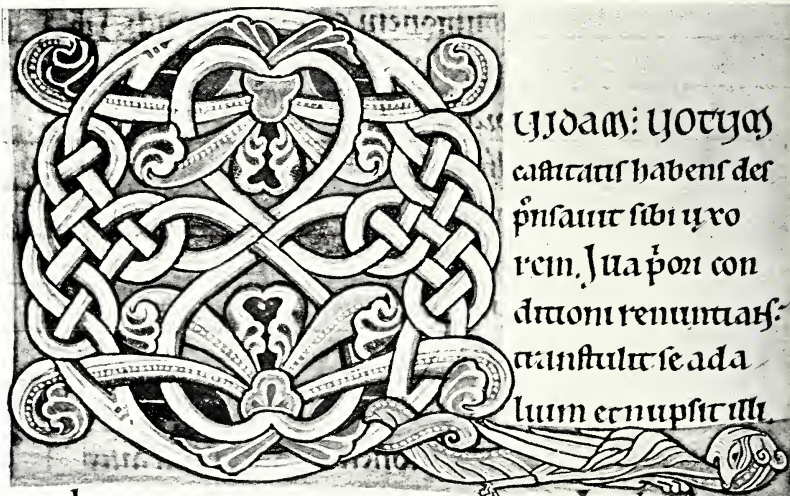 UIDAM: UOTUM
castitatis habens des
p̃nsauit sibi uxo
rem. Illa p̃ori con
ditioni renuntians:
transtulit se ad a
lium et nupsit illi.